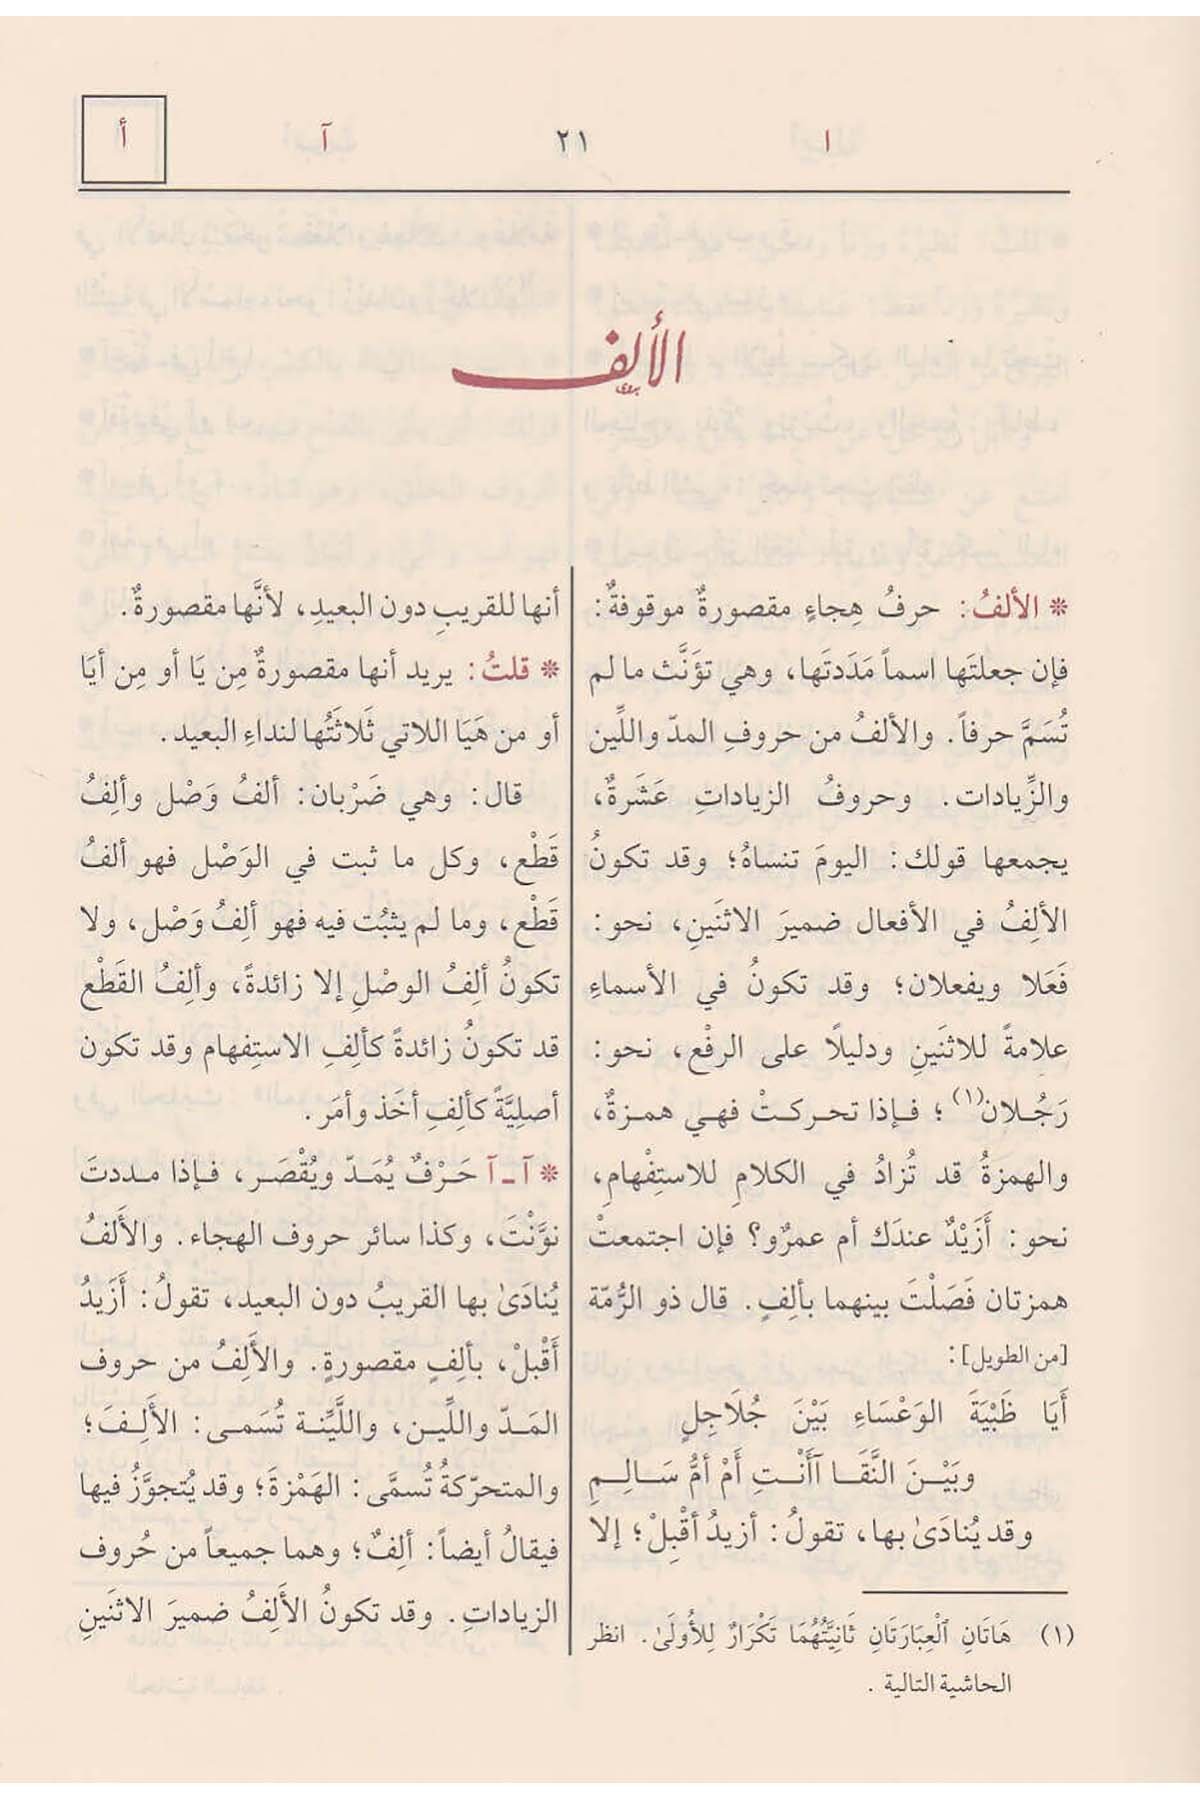 ا ٢١ آ أ
الألف
* الألفُ: حرفُ هِجاءٍ مقصورةٌ موقوفةٌ:
فإن جعلتَها اسماً مَدَدتَها، وهي تؤَنَّث ما لم
تُسَمَّ حرفاً. والألفُ من حروفِ المدّ واللِّين
والزِّيادات. وحروفُ الزياداتِ عَشَرةٌ،
يجمعها قولك: اليومَ تنساهُ؛ وقد تكونُ
الألِفُ في الأفعال ضميرَ الاثنَينِ، نحو:
فَعَلا ويفعلان؛ وقد تكونُ في الأسماءِ
علامةً للاثنَينِ ودليلًا على الرفْع، نحو:
رَجُـلان(١)؛ فـإذا تحـركـتْ فهـي همـزةٌ،
والهمزةُ قد تُزادُ في الكلامِ للاستِفْهامِ،
نحو: أَزَيْدٌ عندَك أم عمرٌو؟ فإن اجتمعتْ
همزتان فَصَلْتَ بينهما بألِفٍ. قال ذو الرُّمّة
[من الطويل]:
أَيَا ظَبْيَةَ الوَعْسَاءِ بَيْنَ جُلَاجِلٍ
وبَيْـنَ النَّقَـا آأَنْـتِ أَمْ أمُّ سَـالِـمِ
وقد يُنادَىٰ بها، تقولُ: أزيدُ أقْبِلْ؛ إلا
(١) هَاتَانِ ٱلْعِبَارَتَانِ ثَانِيَتُهُمَا تَكْرَارٌ لِلأُولَىٰ. انظر
الحاشية التالية.
أنها للقريبِ دون البعيدِ، لأنَّها مقصورةٌ.
* قلتُ: يريد أنها مقصورةٌ مِن يَا أو مِن أيَا
أو من هَيَا اللاتي ثَلاثَتُها لنداءِ البعيد.
قال: وهي ضَرْبان: ألفُ وَصْل وألِفُ
قَطْع، وكل ما ثبت في الوَصْل فهو ألفُ
قَطْع، وما لم يثبُت فيه فهو ألِفُ وَصْل، ولا
تكونُ ألِفُ الوصْلِ إلا زائدةً، وألِفُ القَطْع
قد تكونُ زائدةً كألِفِ الاستِفهام وقد تكون
أصلِيَّةً كألِفِ أخَذ وأمَر.
* آ ـ آ حَـرْفٌ يُمَـدّ ويُقْصَـر، فـإذا مـددتَ
نوَّنْتَ، وكذا سائر حروف الهجاء. والأَلفُ
يُنادَىٰ بها القريبُ دون البعيد، تقولُ: أَزَيدُ
أَقْبِلْ، بألِفٍ مقصورةٍ. والأَلِفُ من حروف
المَـدّ واللِّيـن، واللَّيِّنـة تُسَمـى: الأَلِـفَ؛
والمتحرّكةُ تُسمَّى: الهَمْزةَ؛ وقد يُتجوَّزُ فيها
فيقالُ أيضاً: ألِفٌ؛ وهما جميعاً من حُروف
الزياداتِ. وقد تكونُ الأَلِفُ ضميرَ الاثنَينِ